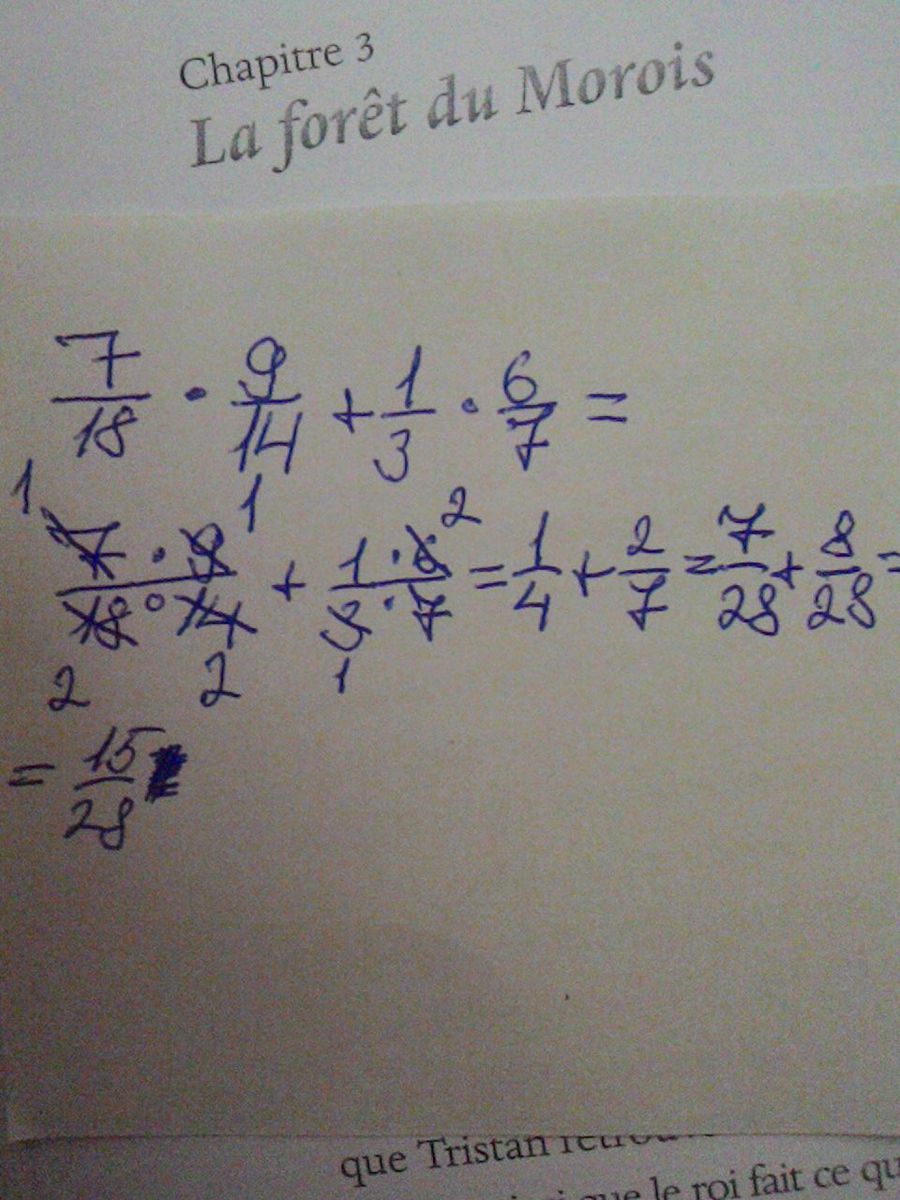 Chapitre 3
La forêt du Morois
7/18 · 9/14 + 1/3 · 6/7 =
1 1 2
7 · 9 / 18 · 14 + 1 · 6 / 3 · 7 = 1/4 + 2/7 = 7/28 + 8/28 =
2 2 1
= 15/28
que Tristan
que le roi fait ce qu